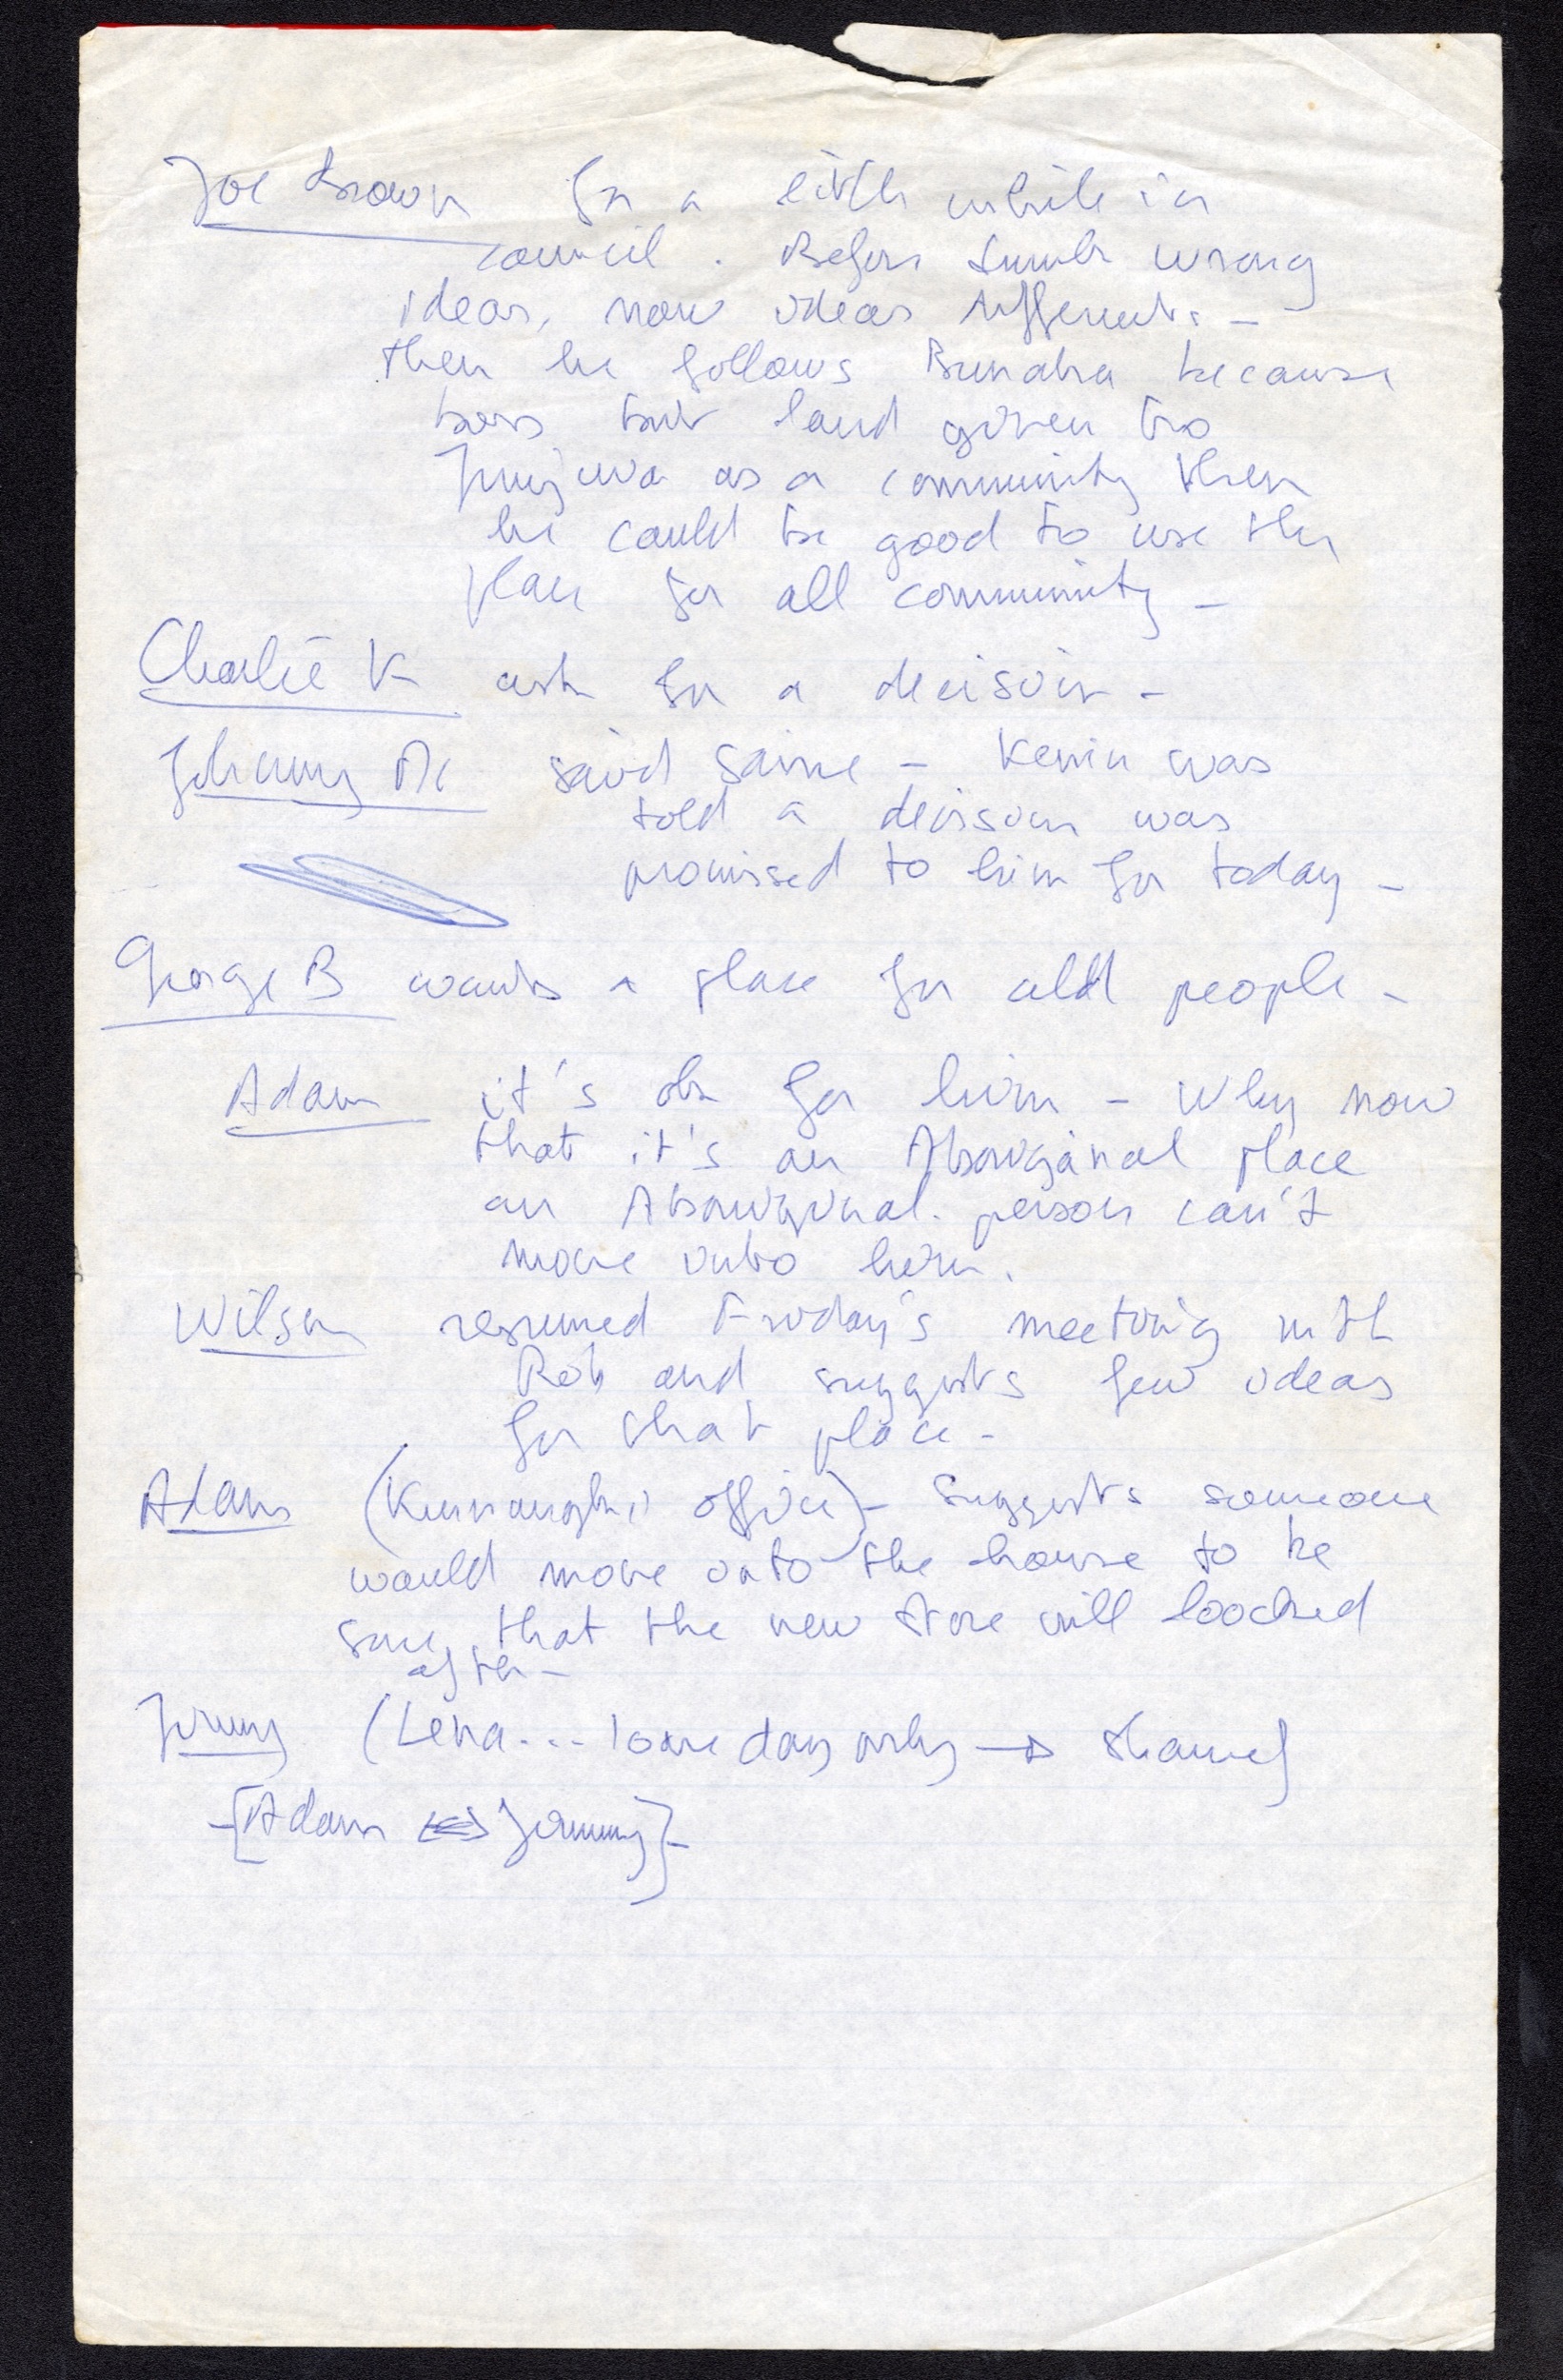 Joe Brown for a little while in
council. Before wrong
ideas, now ideas different. -
then he follows Bunaba because
boss but land given to
Junjuwa as a community then
he could be good to use the
place for all community -
Charlie K ask for a decision -
Johnny said same - Kevin was
told a decision was
promissed to him for today -
George B wants a place for old people -
Adam it's ok for him - Why now
that it's an Aboriginal place
an Aboriginal person can't
move into him.
Wilson resumed Friday's meeting with
Rob and suggests few ideas
for that place -
Adam ( office) - Suggests someone
would move into the house to be
sure that the new store will loocked
after -
Jimmy (Lena... one day only →
[Adam ⟷ Jimmy] -